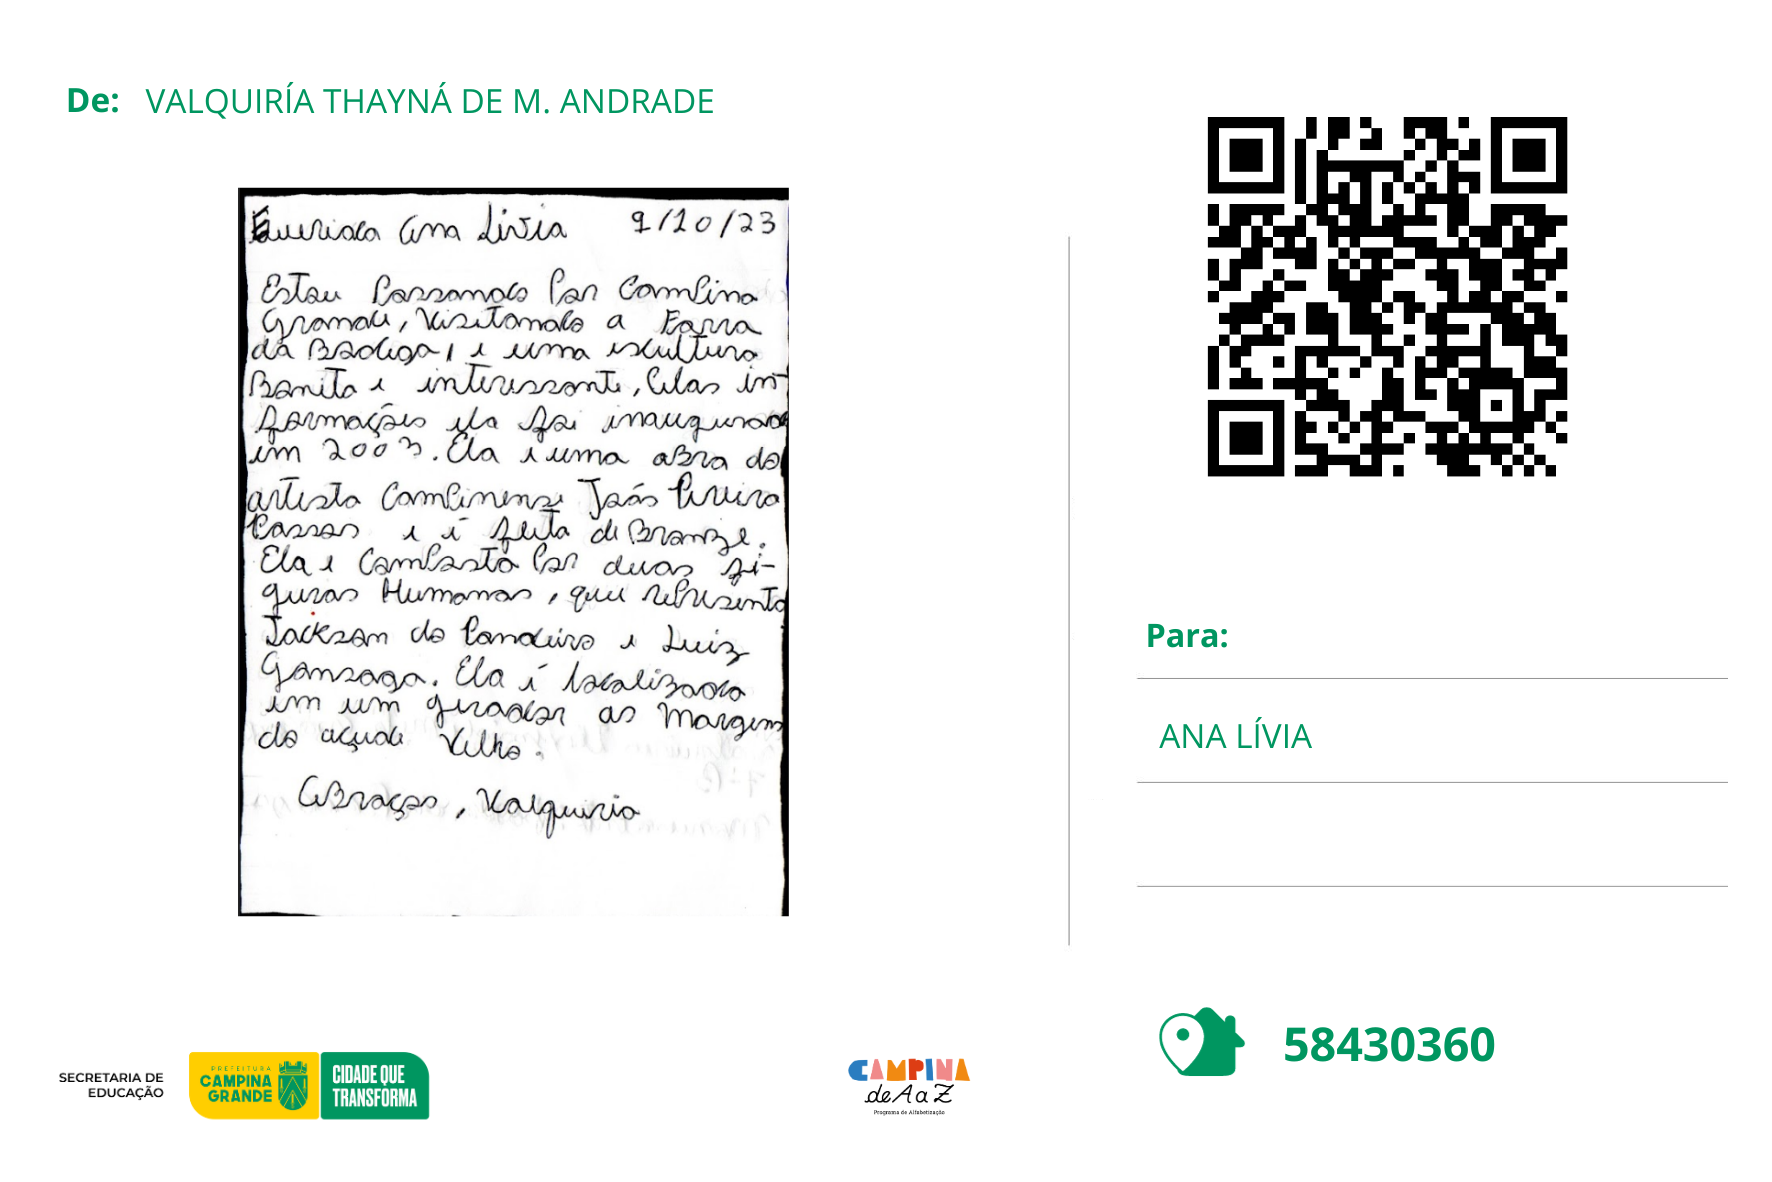 De: VALQUIRÍA THAYNÁ DE M. ANDRADE
Querida Ana Livia 9/10/23
Estou Passando Por Campina
Grande, Visitando a Farra
da Bodega, e uma escultura
Bonita e interessante, Pelas in-
formações ela foi inaugurada
em 2003. Ela e uma obra do
artista Campinense João Pereira
Passos e é feita de Bronze.
Ela e Composta Por duas fi-
guras Humanas, que representa
Jackson do Pandeiro e Luiz
Gonzaga. Ela é localizada
em um girador as margens
do açude Velho.
Abraços, Valquiria
Para:
ANA LÍVIA
58430360
SECRETARIA DE
EDUCAÇÃO
PREFEITURA
CAMPINA
GRANDE
CIDADE QUE
TRANSFORMA
CAMPINA
de A a Z
Programa de Alfabetização